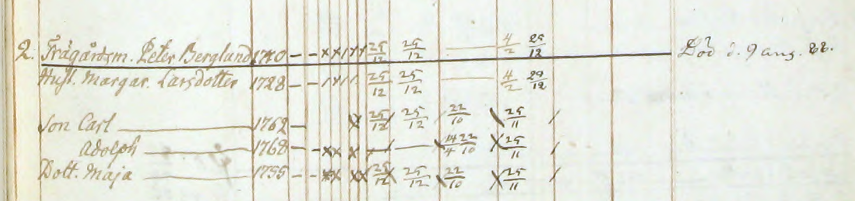 2. Trägårdsm. Peter Berglund 1710 – – x x 25/12 25/12 —— 4/2 29/12 Död d. 9 aug. 88.
Hust. Margar. Larsdotter 1728 – – 25/12 25/12 —— 4/2 29/12
Son Carl —— 1762 – x 25/12 25/12 22/10 x 25/11 /
Adolph —— 1768 – x x x —— 22/10 x 25/11 /
Dott. Maja —— 1755 – – x x x x 25/12 25/12 22/10 x 25/11